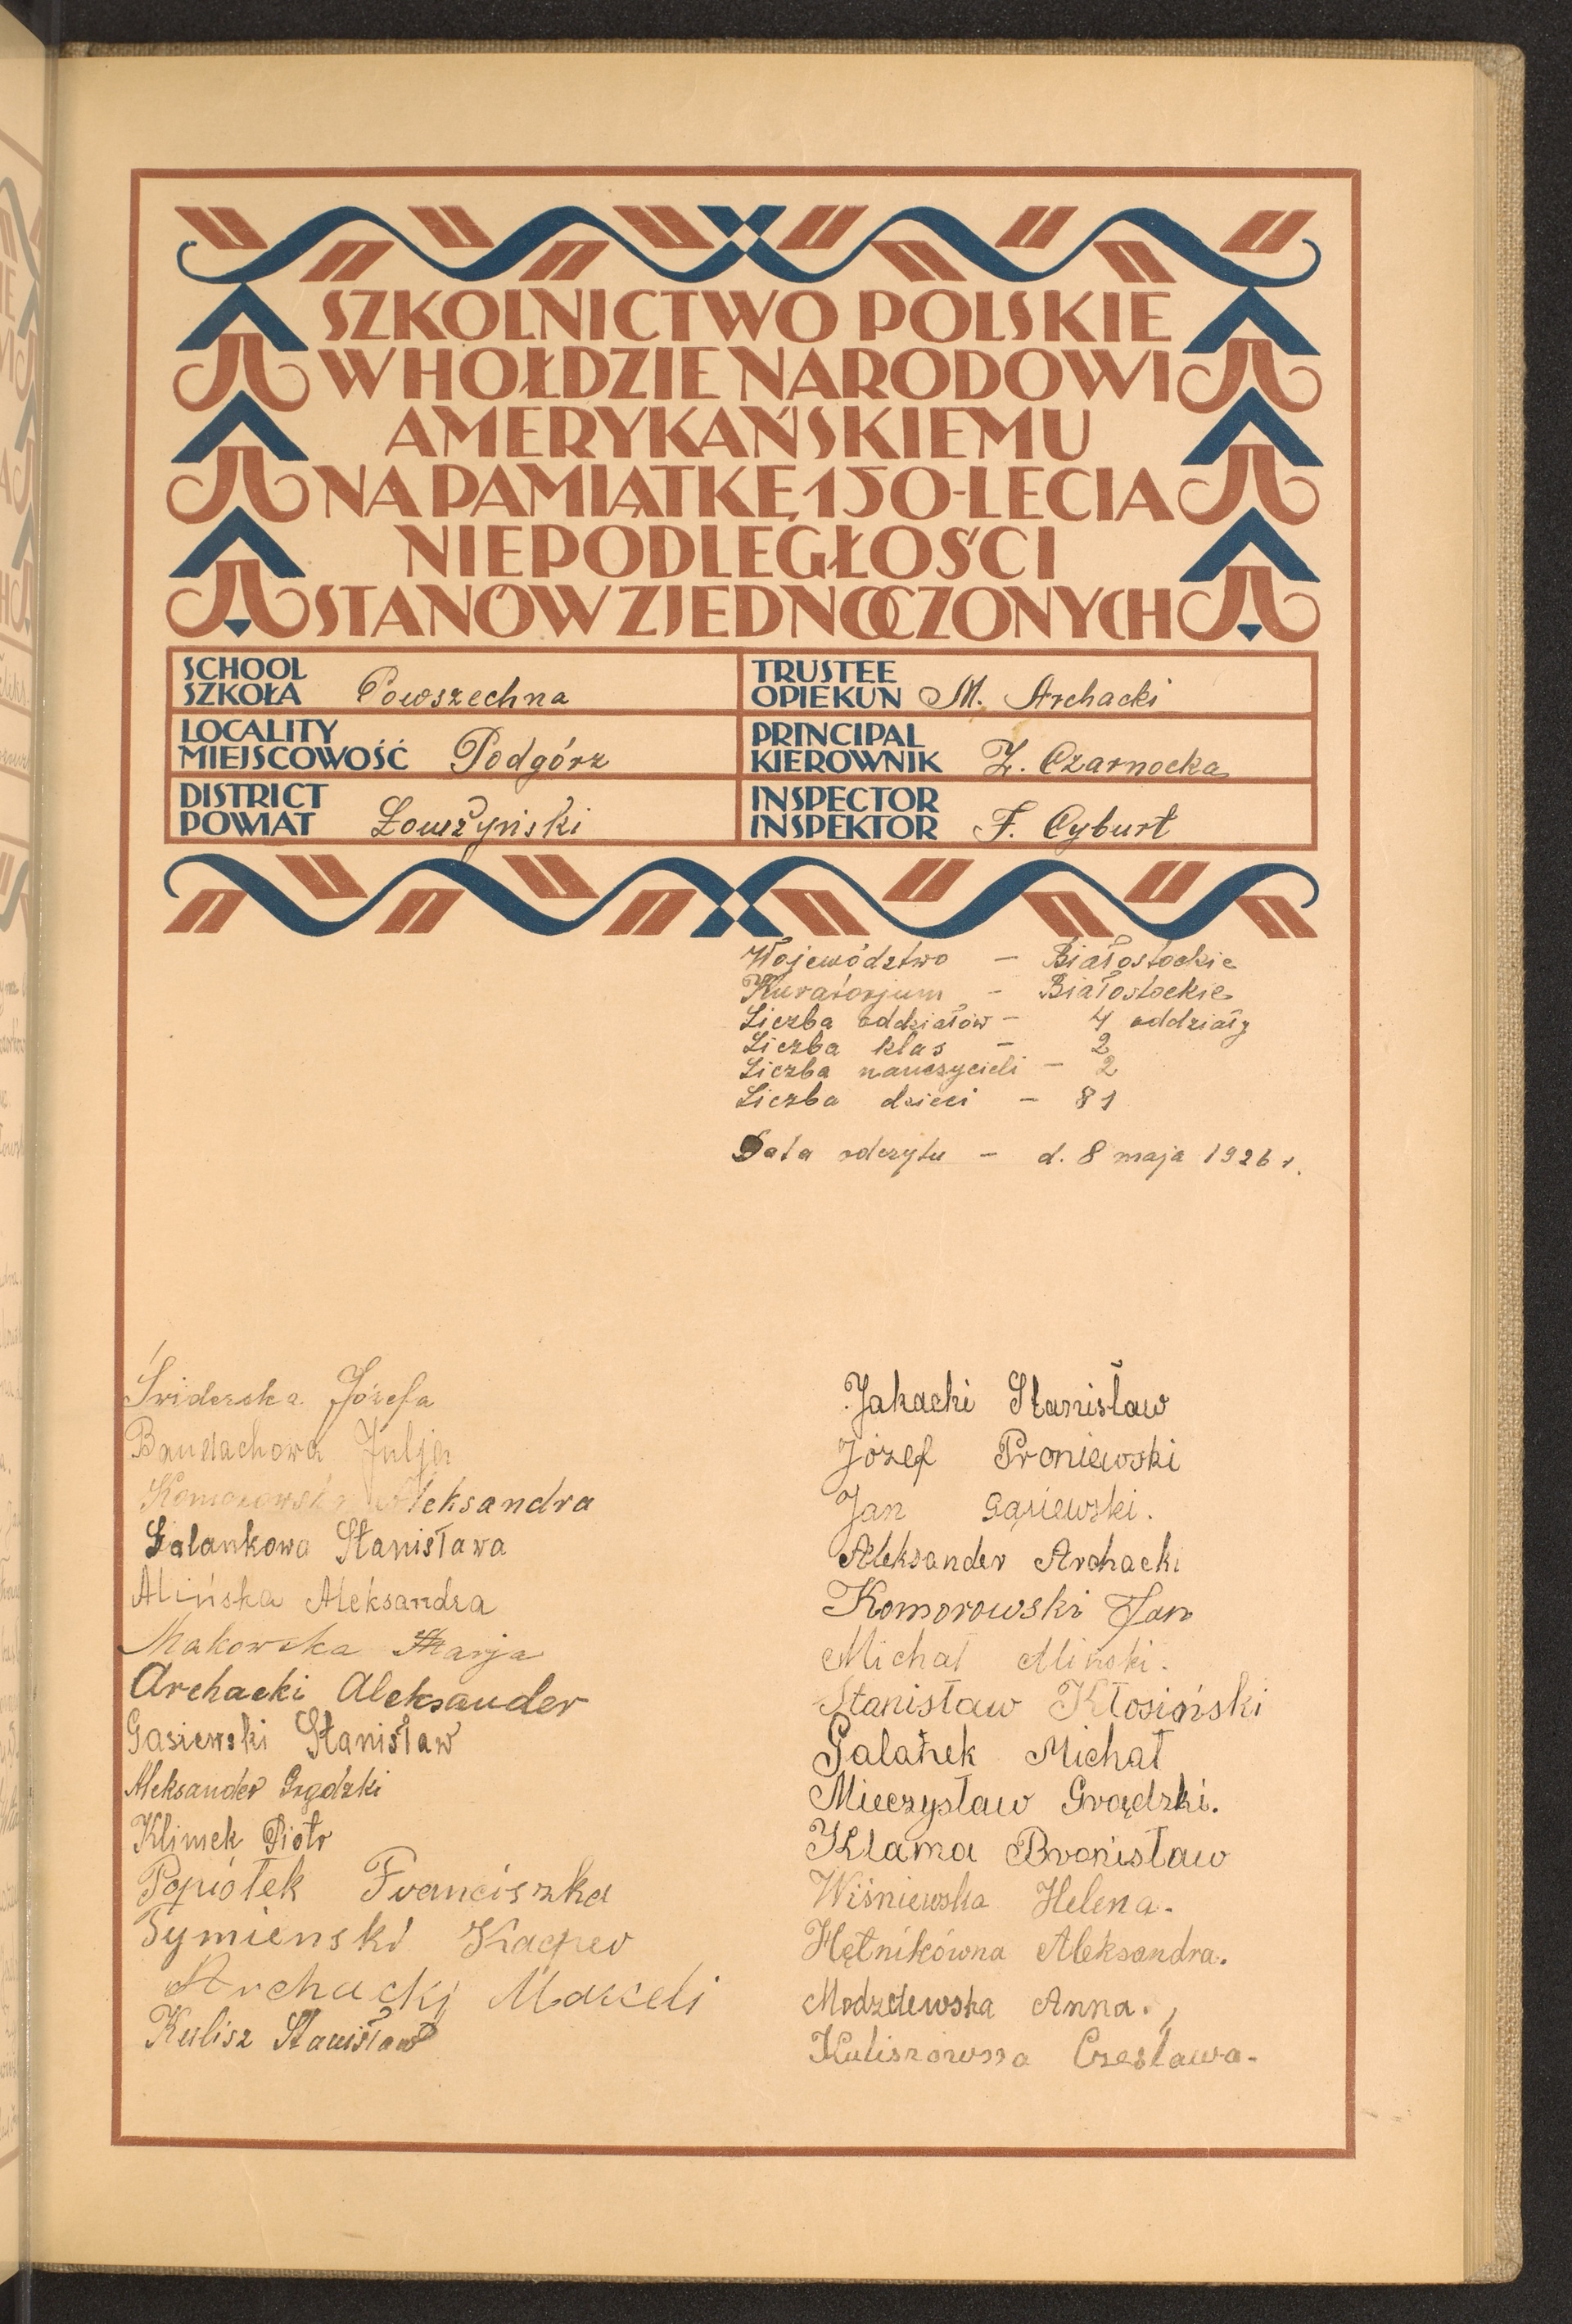 SZKOLNICTWO POLSKIE
W HOŁDZIE NARODOWI
AMERYKAŃSKIEMU
NA PAMIĄTKĘ 150-LECIA
NIEPODLEGŁOŚCI
STANÓW ZJEDNOCZONYCH
SCHOOL
SZKOŁA Powszechna
TRUSTEE
OPIEKUN M. Archacki
LOCALITY
MIEJSCOWOŚĆ Podgórz
PRINCIPAL
KIEROWNIK Z. Czarnocka
DISTRICT
POWIAT Łomżyński
INSPECTOR
INSPEKTOR F. Cyburt
Województwo - Białostockie
Kuratorjum - Białostockie
Liczba oddziałów - 4 oddziały
Liczba klas - 2
Liczba nauczycieli - 2
Liczba dzieci - 81
Data odczytu - d. 8 maja 1926 r.
Świderska Józefa
Julja
Komorowska Aleksandra
Galankowa Stanisława
Alińska Aleksandra
Makowska Marja
Archacki Aleksander
Gasiewski Stanisław
Aleksander Grądzki
Klimek Piotr
Popiołek Franciszka
Tymienski Kacper
Archacki Marceli
Kulisz Stanisław
Jakacki Stanisław
Józef Proniewski
Jan Gąsiewski.
Aleksander Archacki
Komorowski Jan
Michał Aliński.
Stanisław Kłosiński
Galanek Michał
Mieczysław Grądzki.
Klama Bronisław
Wiśniewska Helena.
Hętnikówna Aleksandra.
Modzelewska Anna.
Kuliszówna Czesława.